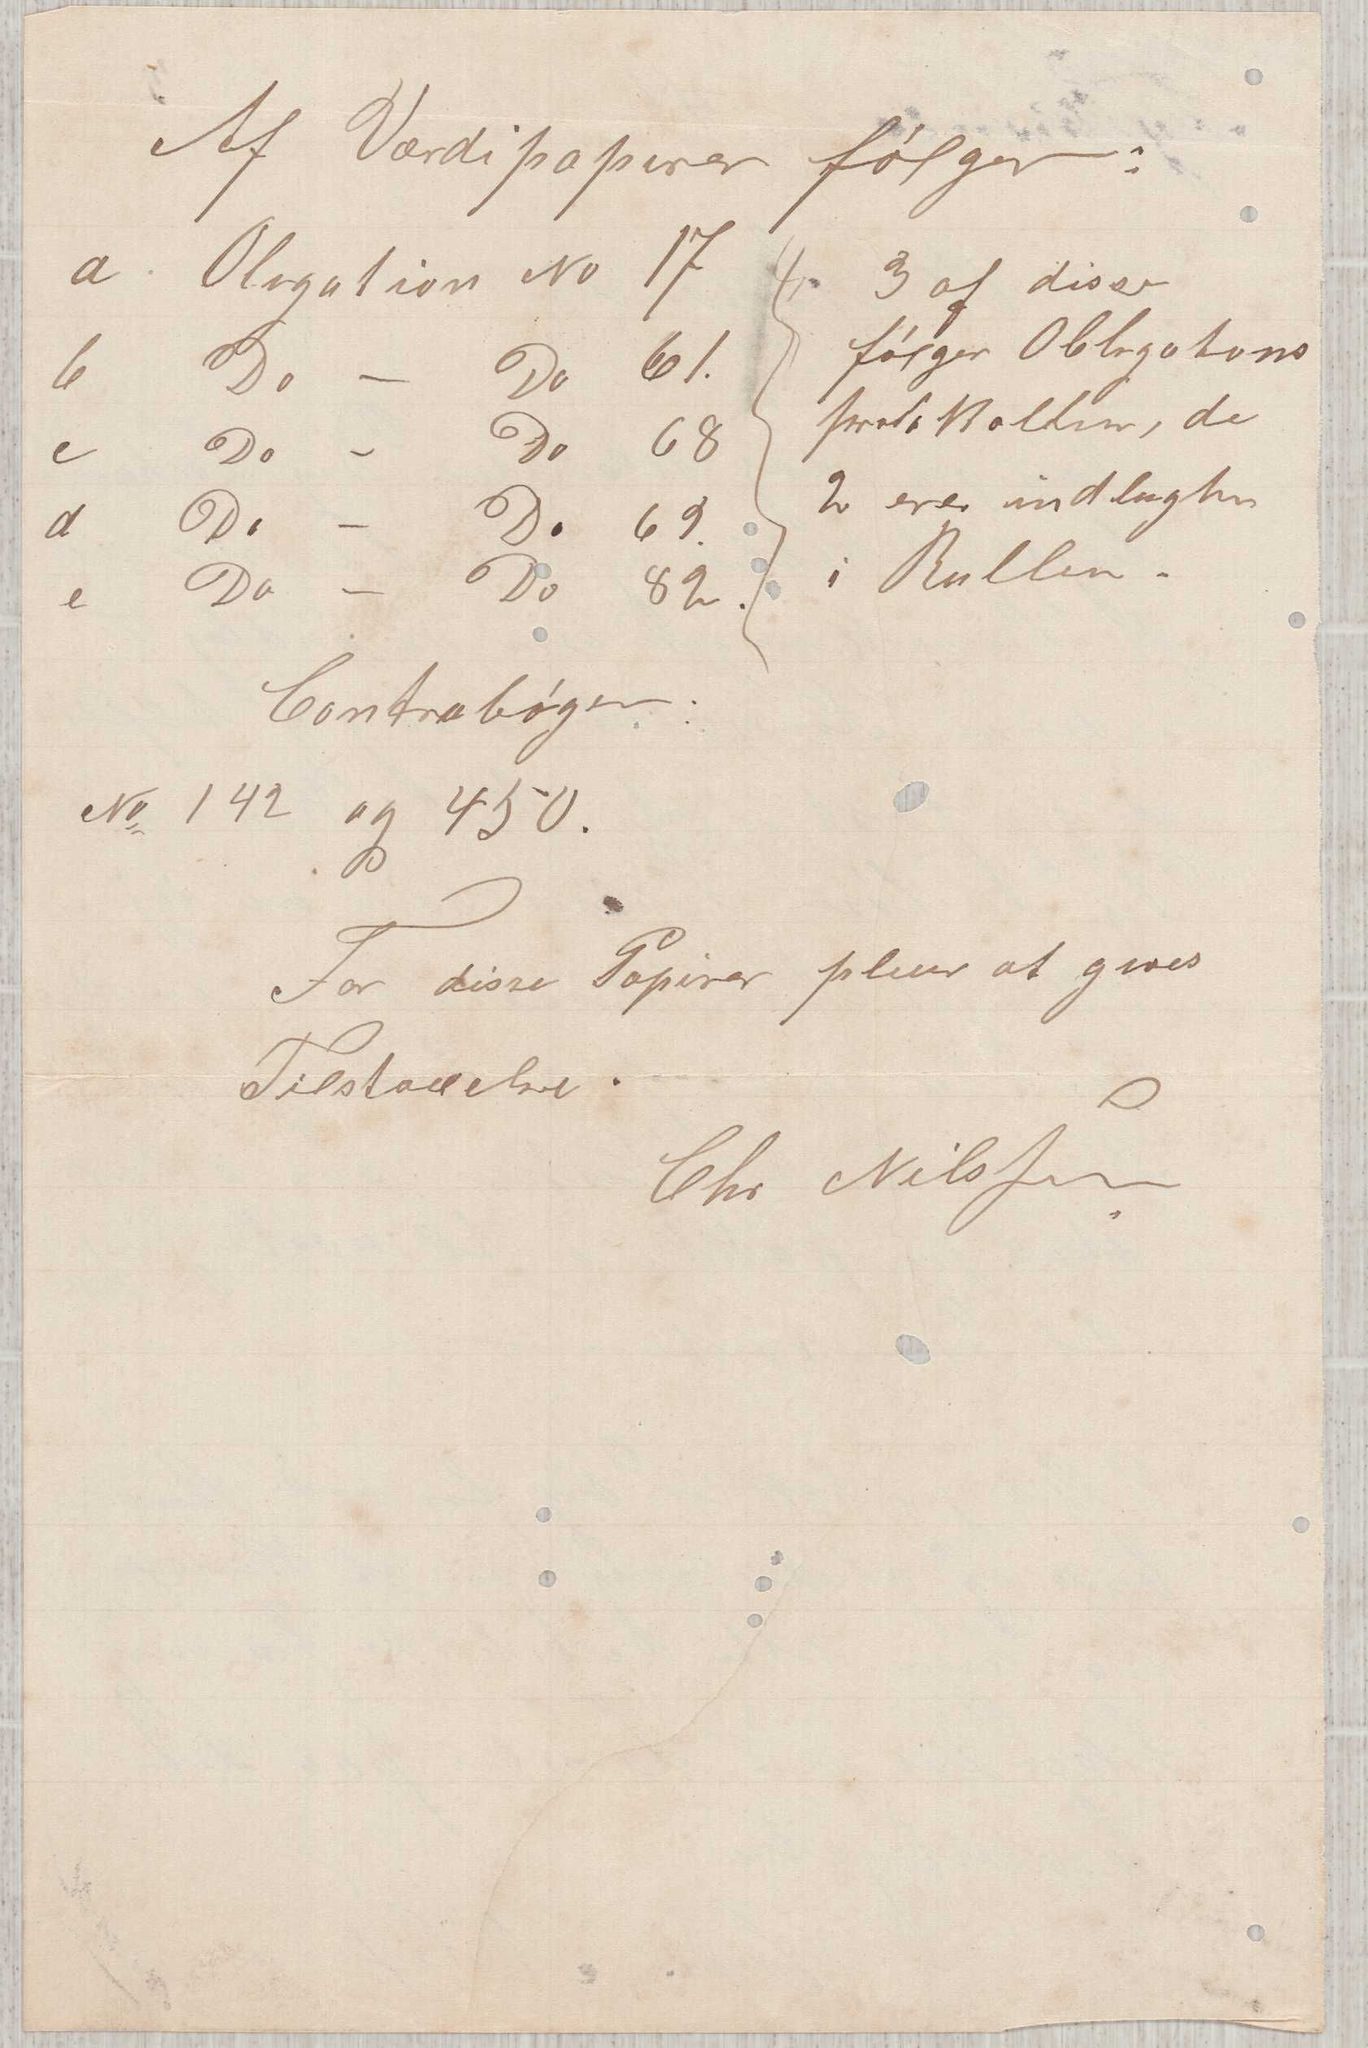 Af Værdipapirer følger:
a. Oligation No 17
b Do - Do 61.
c Do - Do 68
d Do - Do 69.
e Do - Do 82.
3 af disse
følger Obligations
protokollen, de
2 ere indlagte
i Rullen.
Contrabøger:
No 142 og 450.
For disse Papirer pleier at gives
Tilstaaelse.
Chr Nilssen